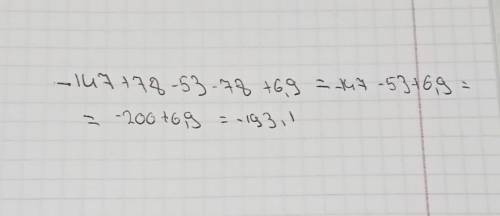 -147+78-53-78+6,9=-147-53+6,9=
=-200+6,9=-193,1